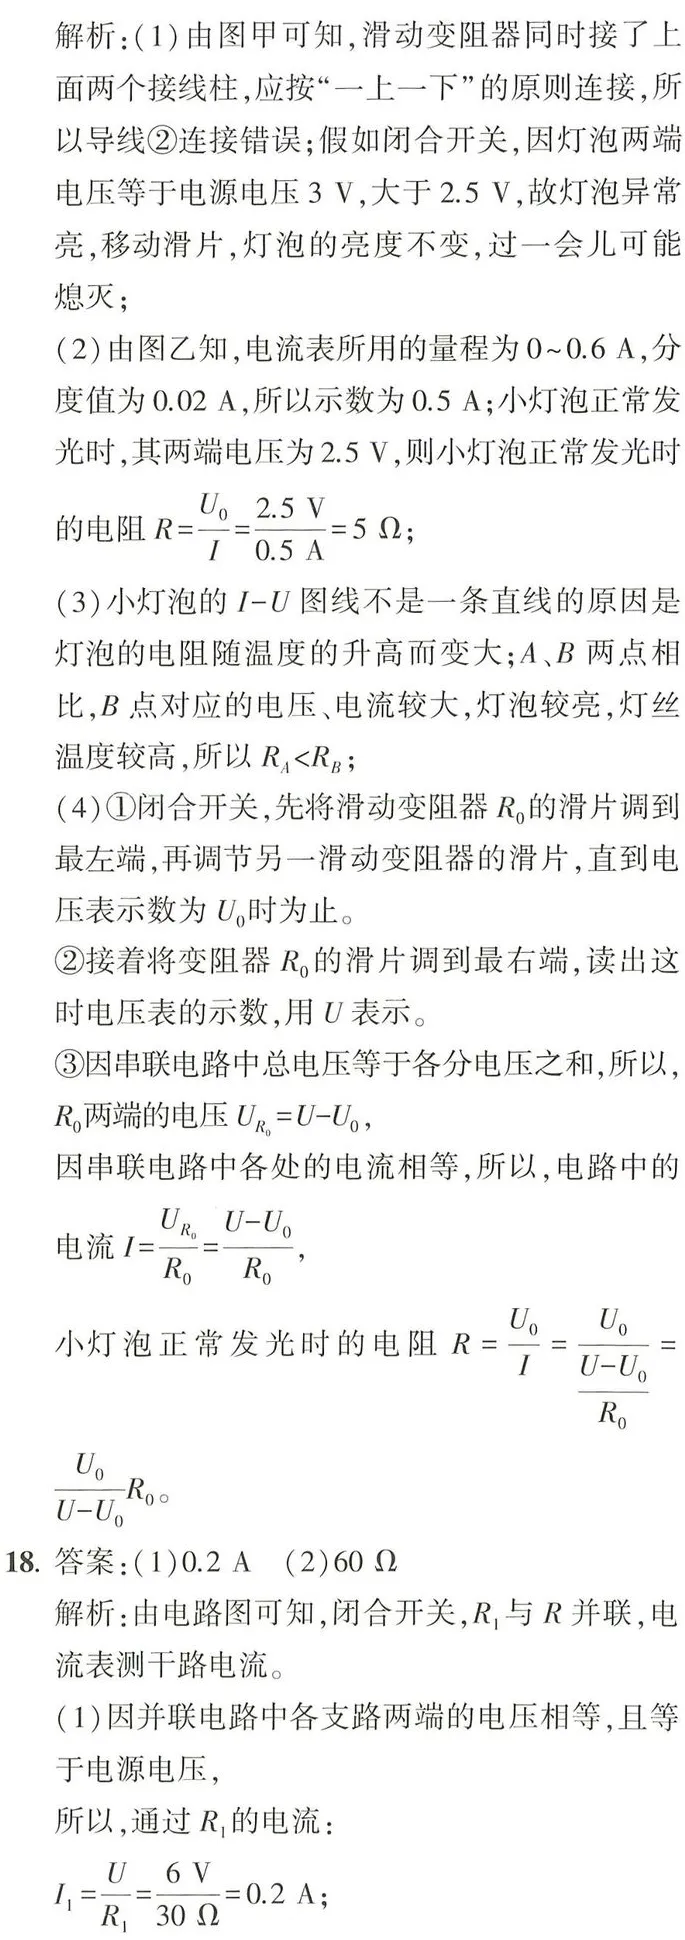 解析:(1)由图甲可知,滑动变阻器同时接了上
面两个接线柱,应按“一上一下”的原则连接,所
以导线②连接错误;假如闭合开关,因灯泡两端
电压等于电源电压3 V,大于2.5 V,故灯泡异常
亮,移动滑片,灯泡的亮度不变,过一会儿可能
熄灭;
(2)由图乙知,电流表所用的量程为0~0.6 A,分
度值为0.02 A,所以示数为0.5 A;小灯泡正常发
光时,其两端电压为2.5 V,则小灯泡正常发光时
的电阻 R=U₀/I=2.5 V/0.5 A=5 Ω;
(3)小灯泡的 I-U 图线不是一条直线的原因是
灯泡的电阻随温度的升高而变大;A、B 两点相
比,B 点对应的电压、电流较大,灯泡较亮,灯丝
温度较高,所以 R_A<R_B;
(4)①闭合开关,先将滑动变阻器 R₀的滑片调到
最左端,再调节另一滑动变阻器的滑片,直到电
压表示数为 U₀时为止。
②接着将变阻器 R₀的滑片调到最右端,读出这
时电压表的示数,用 U 表示。
③因串联电路中总电压等于各分电压之和,所以,
R₀两端的电压 U_R₀=U-U₀,
因串联电路中各处的电流相等,所以,电路中的
电流 I=U_R₀/R₀=(U-U₀)/R₀,
小灯泡正常发光时的电阻 R=U₀/I=U₀/((U-U₀)/R₀)=
U₀/(U-U₀)R₀。
18. 答案:(1)0.2 A (2)60 Ω
解析:由电路图可知,闭合开关,R₁与 R 并联,电
流表测干路电流。
(1)因并联电路中各支路两端的电压相等,且等
于电源电压,
所以,通过 R₁的电流:
I₁=U/R₁=6 V/30 Ω=0.2 A;